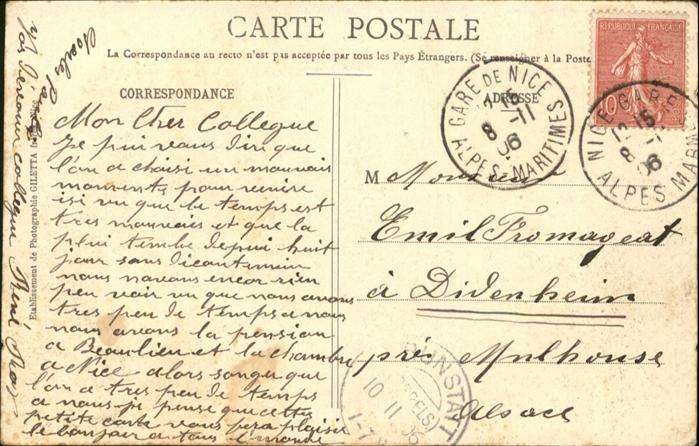 CARTE POSTALE
La Correspondance au recto n'est pas acceptée par tous les Pays Étrangers. (Se renseigner à la Poste
CORRESPONDANCE
ADRESSE
Mon Cher Collegue
Je puis vous dir que
l'on a choisi un mauvais
moments pour venire
isi vu que le temps est
tres mauvais et que la
plui tombe depui huit
jour sans
nous navons encor rien
peu voir vu que nous avons
tres peu de temps a nous
nous avons la pension
a Beaulieu et la chambre
a Nice alors songer que
l'on a tres peu de temps
a nous je pense que cette
petite carte vous fera plaisir
le bonjour a tous l'monde
collegue René
Etablissement de Photographie GILETTA
M Monsieur
Emil Fromageat
à Didenheim
près Mulhouse
Alsace
REPUBLIQUE FRANÇAISE
10
GARE DE NICE
8 -11
06
ALPES-MARITIMES
NICE-GARE
15
8
06
ALPES MAR
10 11 06